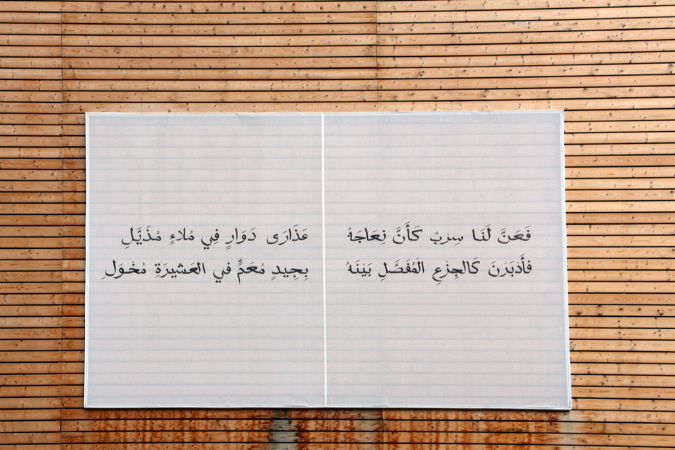 فَعَنَّ لَنَا سِرْبٌ كَأَنَّ نِعَاجَهُ عَذَارَى دَوَارٍ فِي مُلاءٍ مُذَيَّلِ
فأَدْبَرْنَ كَالجِزْعِ الْمُفَصَّلِ بَيْنَهُ بِجِيدٍ مُعَمٍّ في العَشيرَةِ مُخْوَلِ